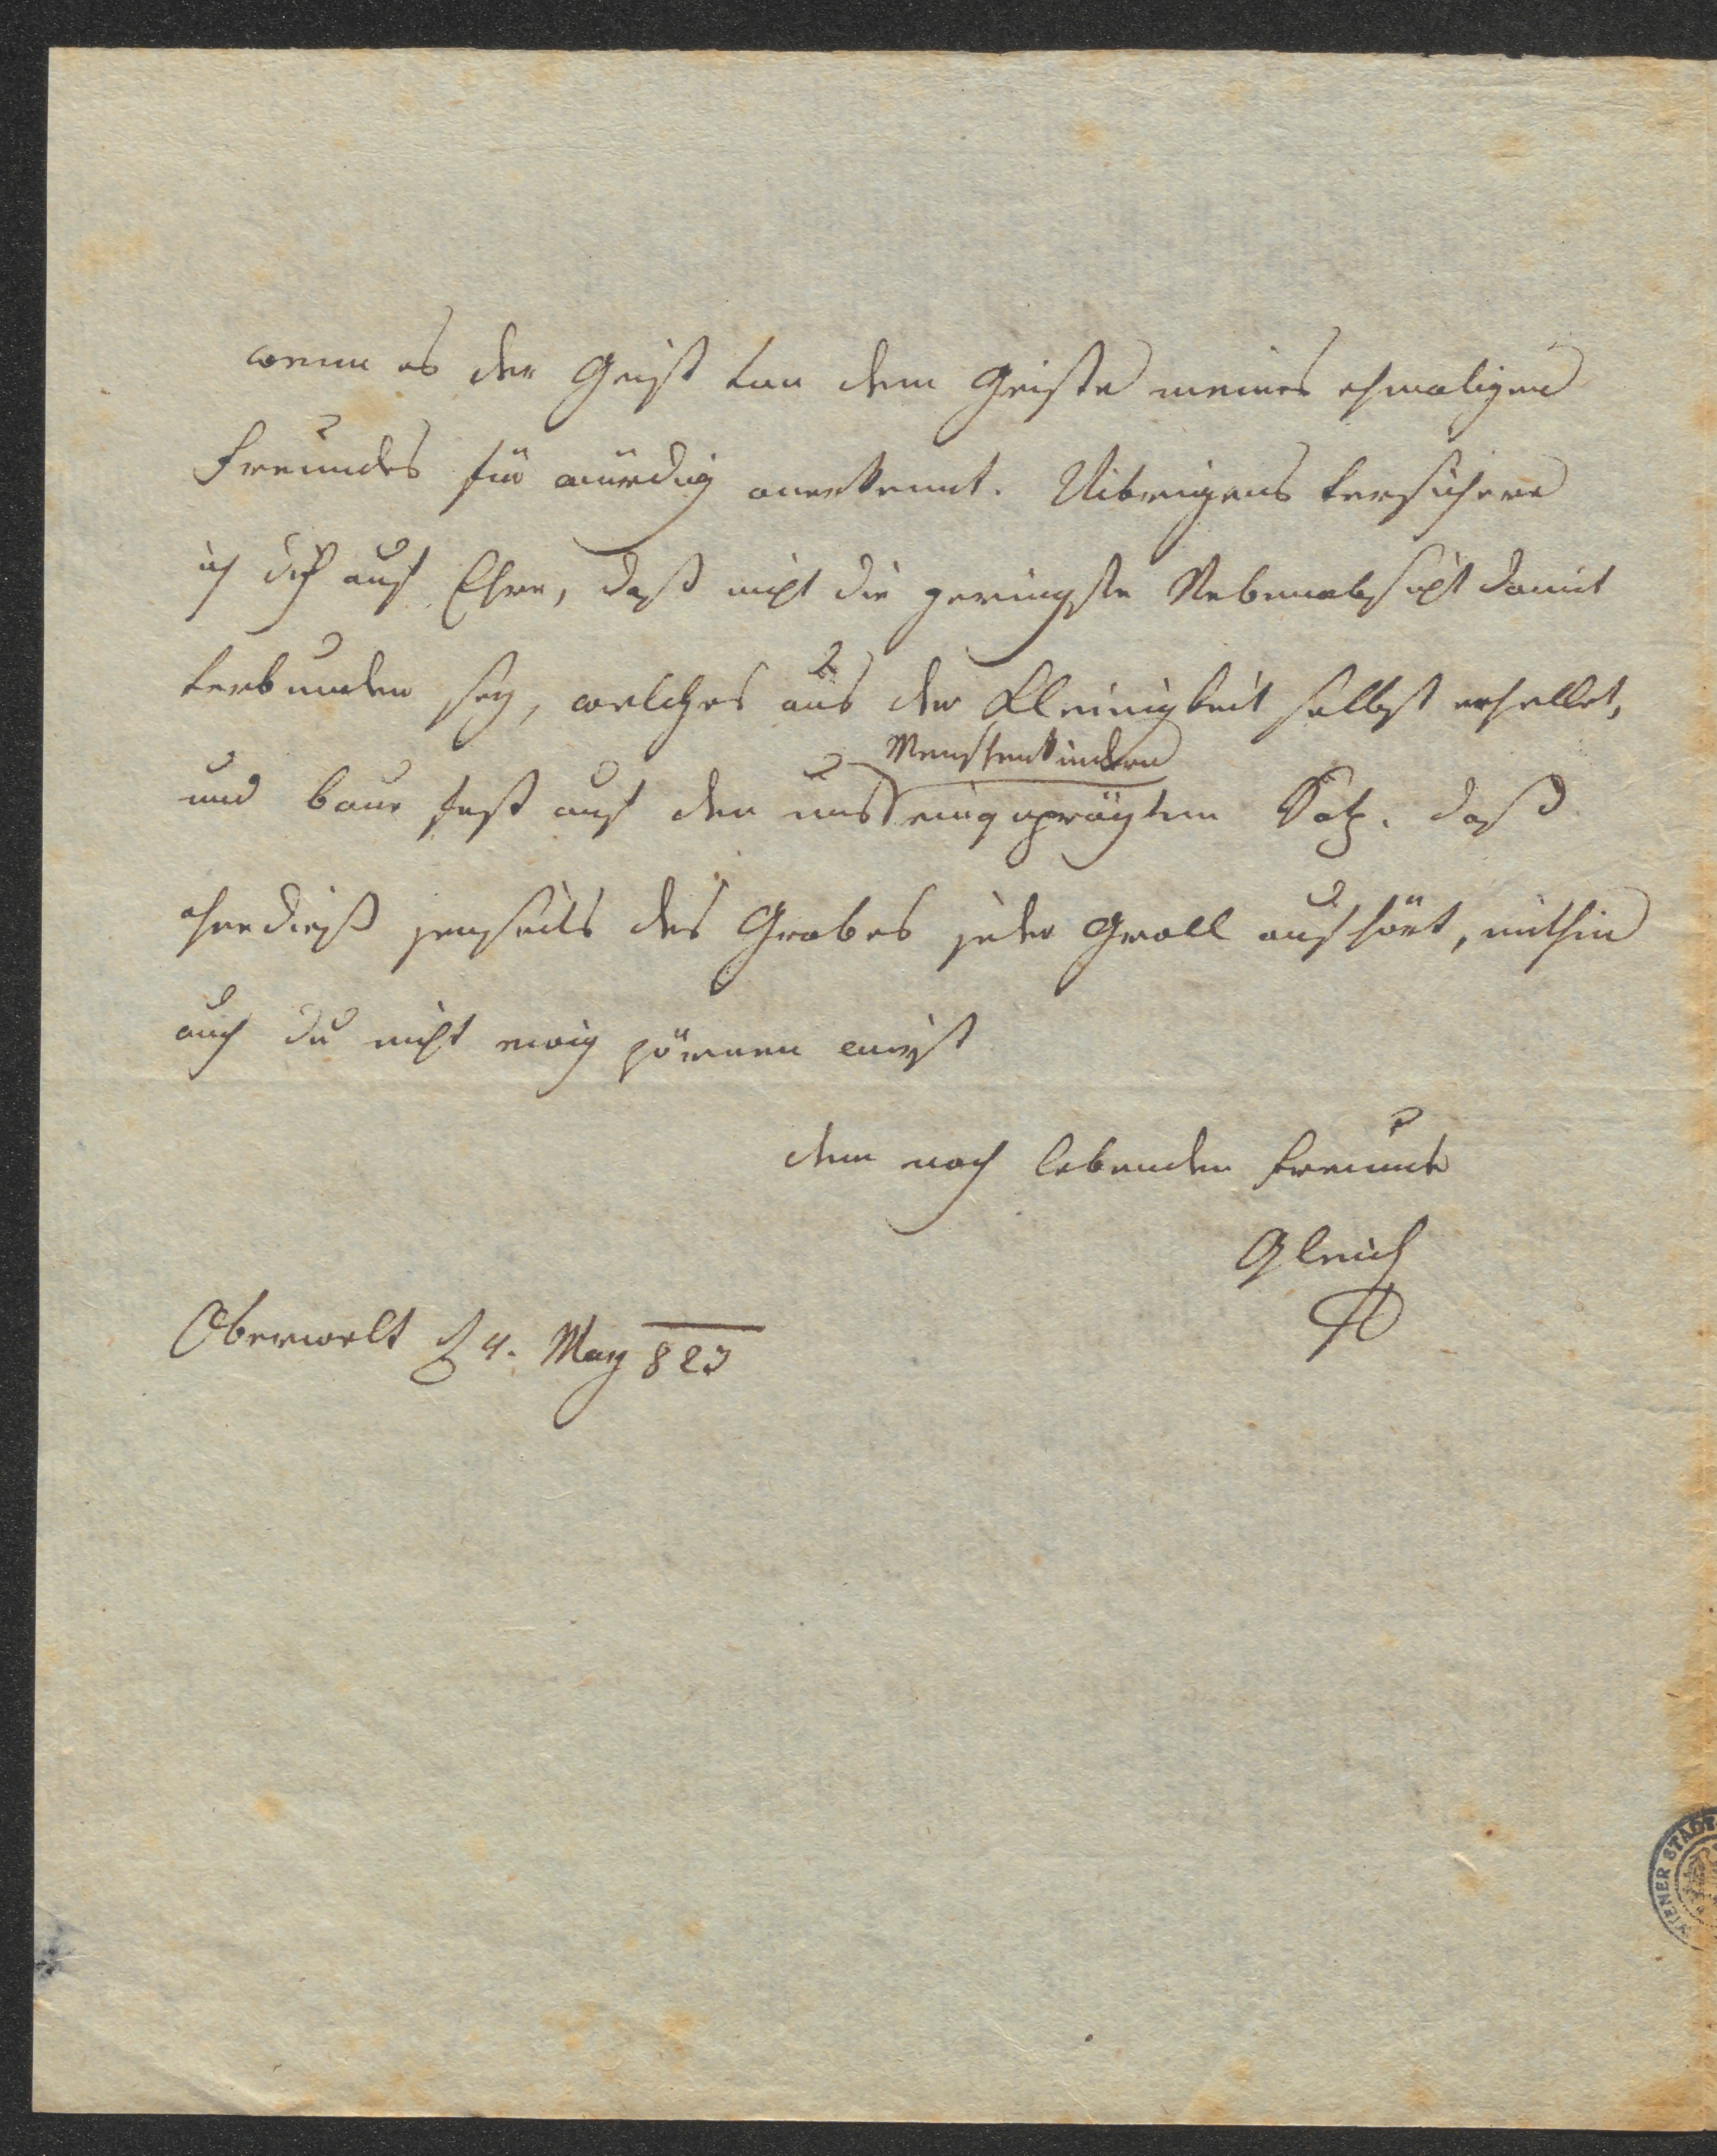 wenn es der Geist von dem Geiste meines ehmaligen
Freundes für würdig anerkennt. Uibrigens versichere
ich dich auf Ehre, daß nicht die geringste Nebenabsicht damit
verbunden sey, welches aus der Kleinigkeit selbst erhellet,
Menschenkindern
und baue fest auf den uns eingeprägten Satz. daß
ohnedieß jenseits des Grabes jeder Groll aufhört, mithin
auch du nicht ewig zörnen wirst
dem noch lebenden Freunde
Gleich
Oberwelt d 4. May 823
WIENER STADT